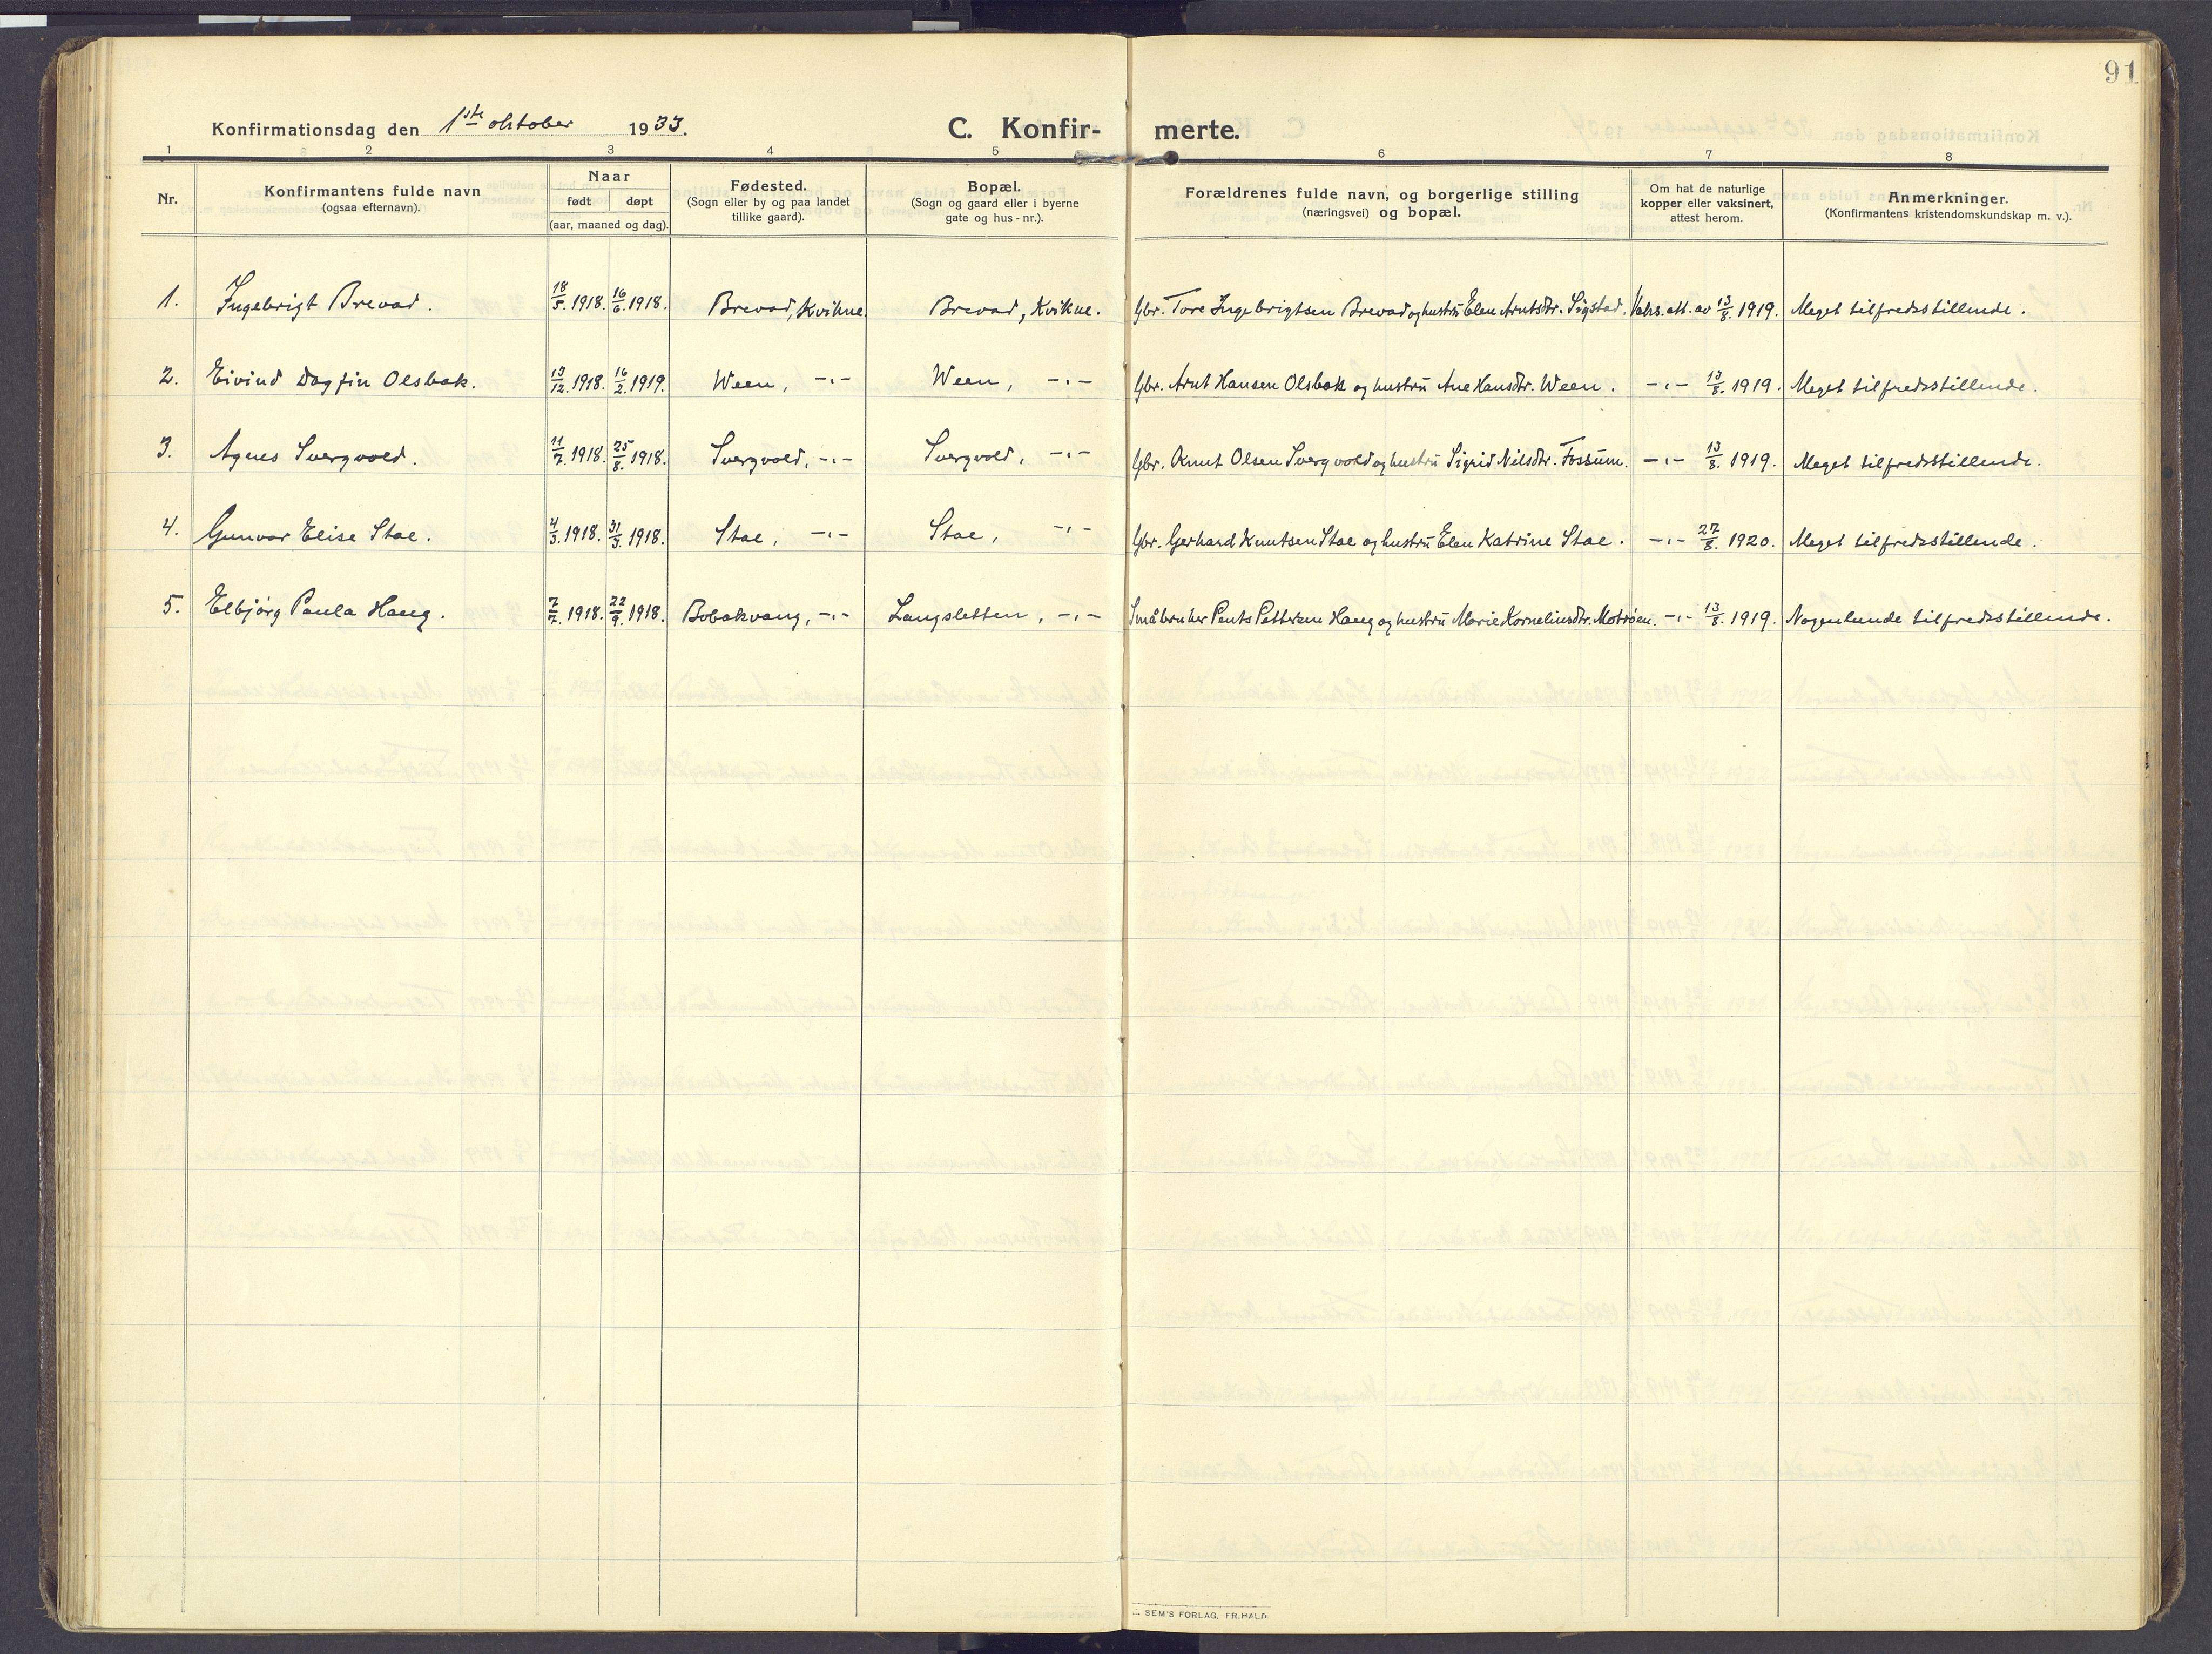 91
Konfirmationsdag den 1ste oktober 1933.
C. Konfir- merte.
1 2 3 4 5 6 7 8
Nr.
Konfirmantens fulde navn
(ogsaa efternavn).
Naar
født døpt
(aar, maaned og dag).
Fødested.
(Sogn eller by og paa landet
tillike gaard).
Bopæl.
(Sogn og gaard eller i byerne
gate og hus-nr.).
Forældrenes fulde navn, og borgerlige stilling
(næringsvei) og bopæl.
Om hat de naturlige
kopper eller vaksinert,
attest herom.
Anmerkninger.
(Konfirmantens kristendomskundskap m. v.).
1. Ingebrigt Brevad. 18/5. 1918. 16/6. 1918. Brevad, Kvikne. Brevad, Kvikne. Gbr. Tore Ingebrigtsen Brevad og hustrú Elen Arntsdtr. Sigstad. Vaks. att. av 13/8. 1919. Meget tilfredsstillende.
2. Eivind Dagfin Olsbak. 13/12. 1918. 16/2. 1919. Ween, -„- Ween, -„- Gbr. Arnt Hansen Olsbak og hustrú Ane Hansdtr. Ween. -„- 13/8. 1919. Meget tilfredsstillende.
3. Agnes Svergvold. 11/7. 1918. 25/8. 1918. Svergvold, -„- Svergvold, -„- Gbr. Knut Olsen Svergvold og hustrú Sigrid Nilsdtr. Fossum. -„- 13/8. 1919. Meget tilfredsstillende.
4. Gunvor Elise Stae. 4/3. 1918. 31/3. 1918. Stae, -„- Stae, -„- Gbr. Gerhard Knutsen Stae og hustrú Elen Katrine Stae. -„- 27/8. 1920. Meget tilfredsstillende.
5. Elbjörg Paula Haug. 7/7. 1918. 22/9. 1918. Bobakvang, -„- Langsletten, -„- Småbruker Pents Pettersen Haug og hustrú Marie Korneliusdtr. Motröen. -„- 13/8. 1919. Nogenlunde tilfredsstillende.
SEM'S FORLAG, FR.HALD.